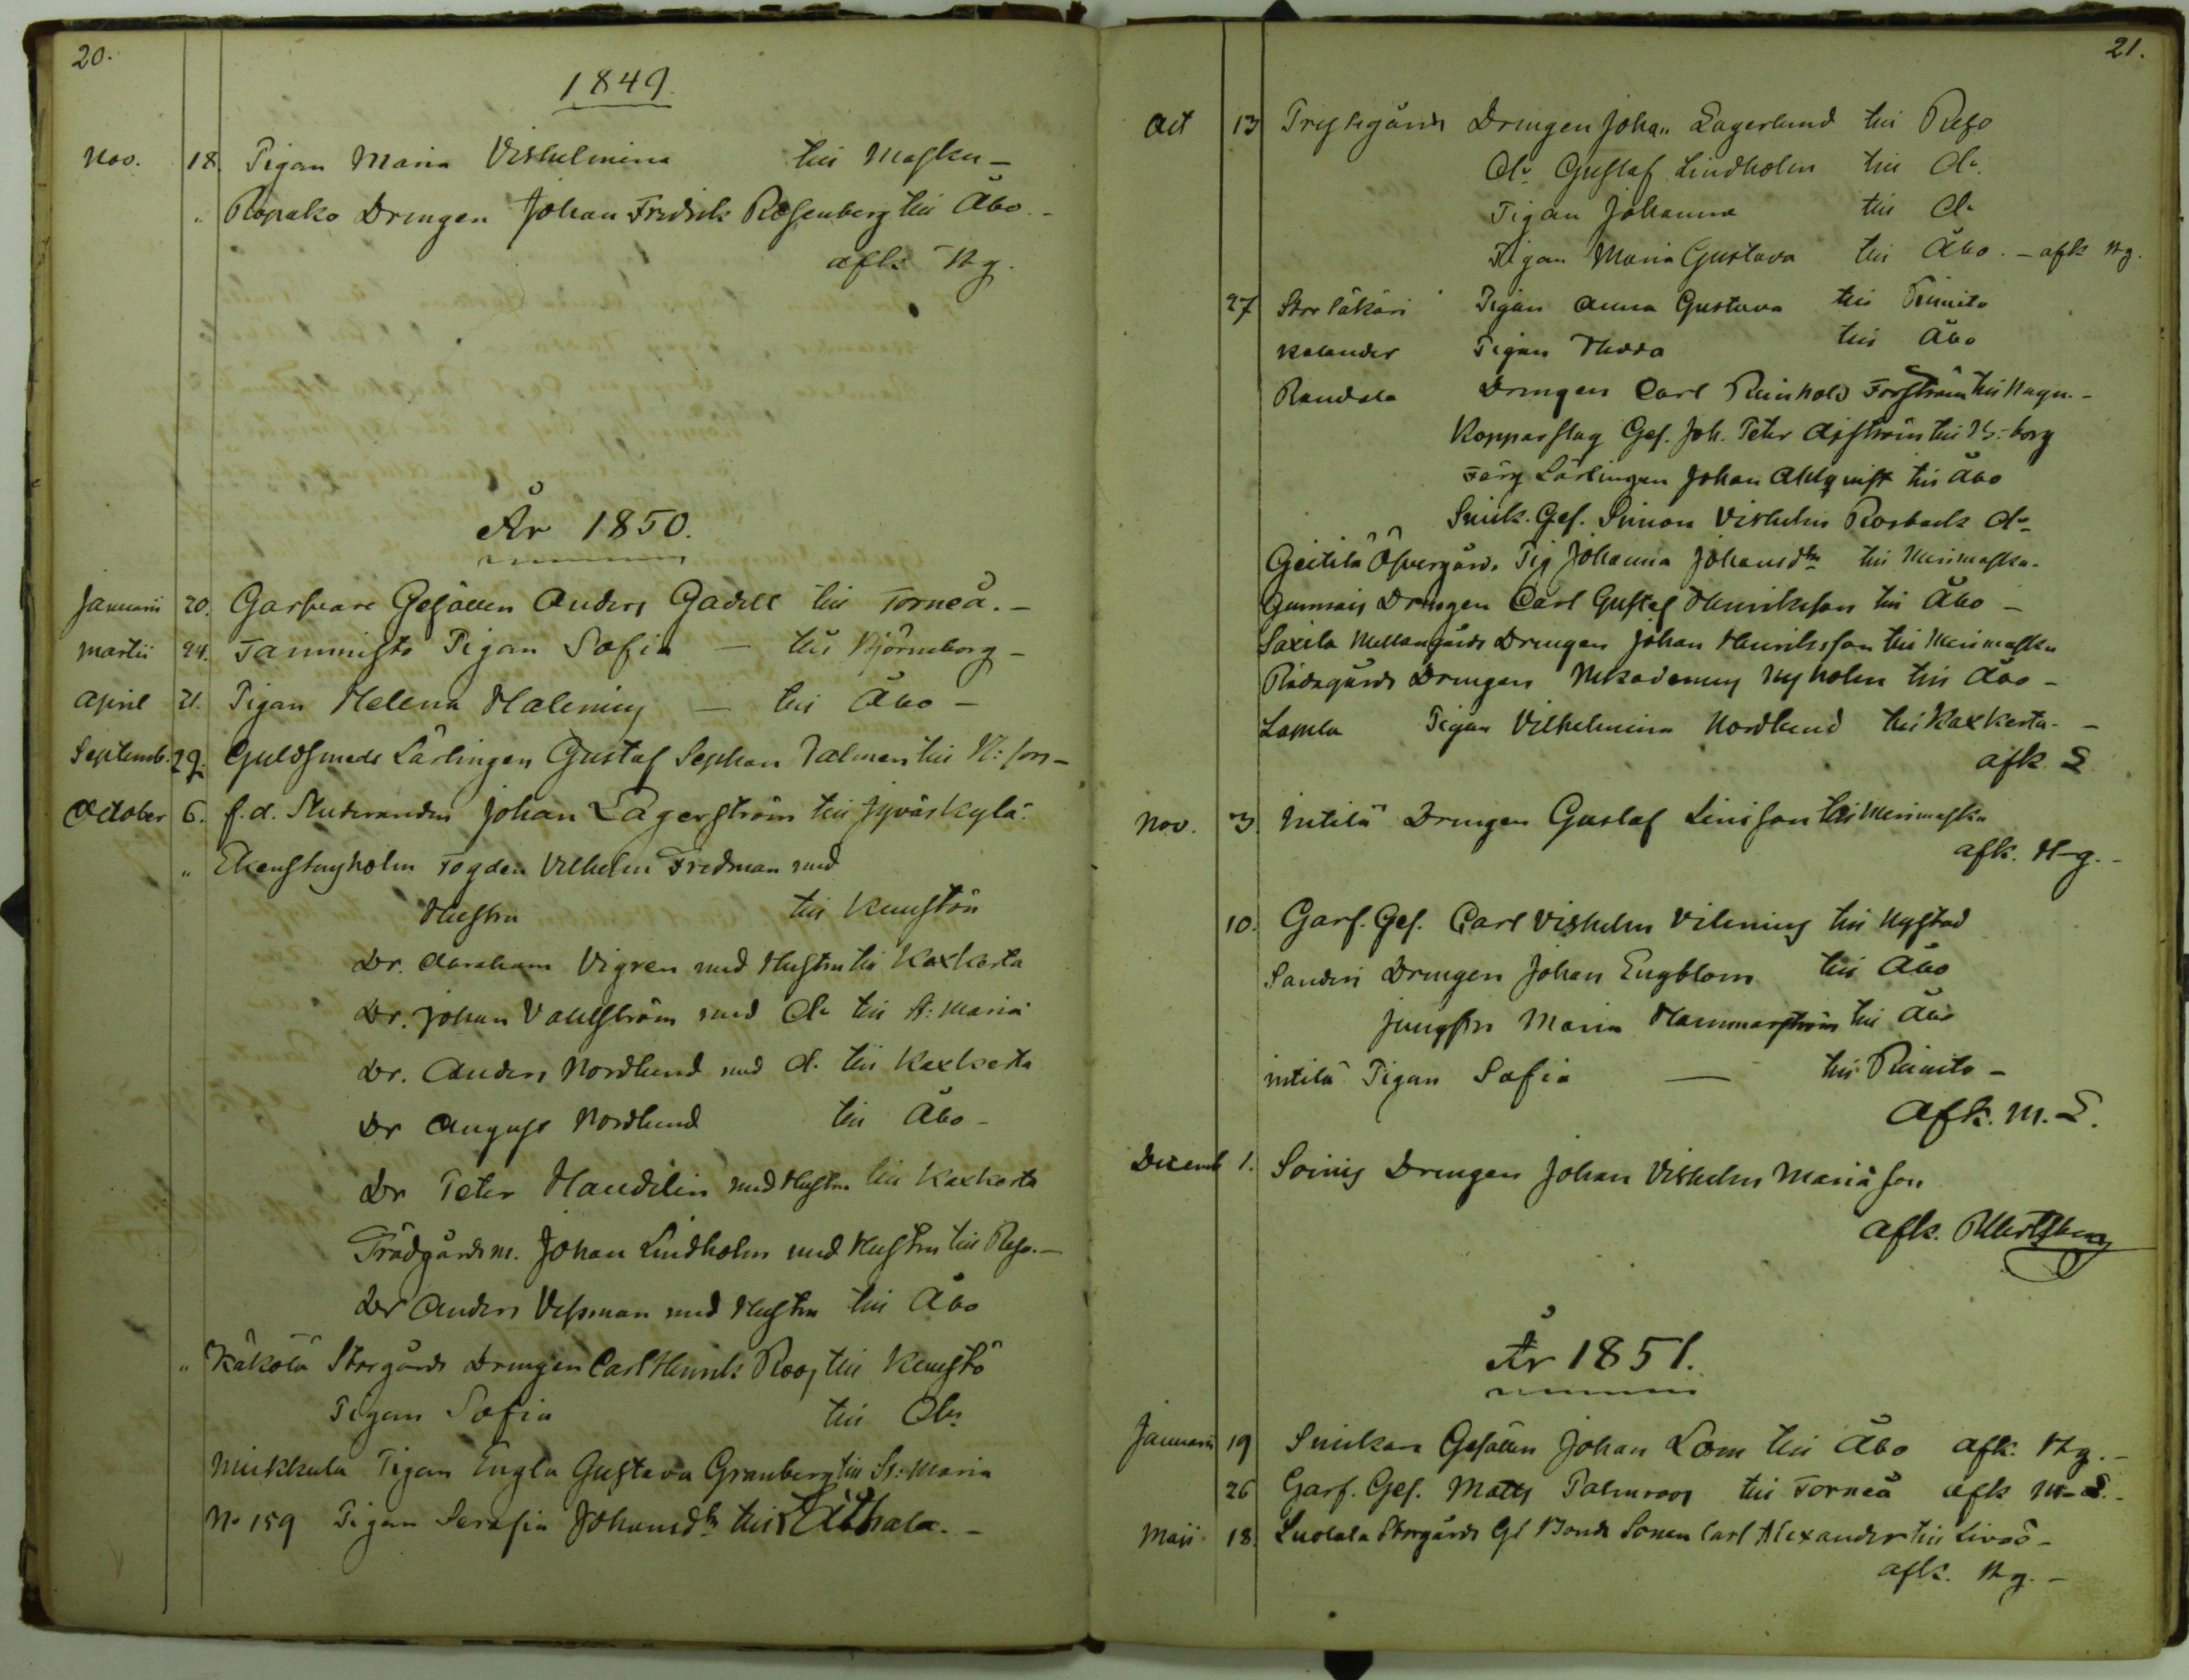 20.
1849.
Nov. 18. Pigan Maria Vilhelmina till Masku –
" Ropako Drengen Johan Fredrik Rosenberg till Åbo. –
afk. Hg.
År 1850.
Januarii 20. Garfvare Gesällen Anders Gadell till Torneå. –
Martii 24. Tammisto Pigan Sofia – till Björneborg –
April 21. Pigan Helena Halenius – till Åbo –
Septemb. 29. Guldsmeds Lärlingen Gustaf Sephan Palmen till H:fors –
October 6. f.d. Studeranden Johan Lagerström till Jyväskylä.
" Ekenstuyholm Fogden Vilhelm Fredman med
Hustru till Kemstön
Dr. Abraham Vigren med Hustru till Kaxkerta
Dr. Johan Vahlström med do till St: Maria
Dr. Anders Nordlund med do till Kaxkerta
Dr August Nordlund till Åbo –
Dr Peter Handelin med Hustru till Kaxkerta
Trädgårdsm. Johan Lindholm med Hustru till Reso. –
Dr Anders Vessman med Hustru till Åbo
" Käkölä Storgårds Drengen Carl Henrik Roos till Kemstö
Pigan Sofia till do
Mukkula Pigan Engla Gustava Granberg till St: Maria
No 159 Pigan Serafia Johansdtr till –
21.
Oct 13 Drengen Johan Lagerlund till Reso
do Gustaf Lindholm till do
Pigan Johanna till do
Pigan Maria Gustava till Åbo. – afk Hg.
27 Stor läkäri Pigan Anna Gustava till Rimito
Kalander Pigan Hedda till Åbo
Randala Drengen Carl Reinhold Forsström till Nagu. –
Kopparslag Ges. Joh. Peter till B:borg
Färg Lärlingen Johan Ahlqvist till Åbo
Snick. Ges. Simon Vilhelm Rosback do
Geitilä Öfvergårds Pig Johanna Johansdtr till Merimasku.
Gunnais Drengen Carl Gustaf Henriksson till Åbo –
Saxila Mellangårds Drengen Johan Henriksson till Merimasku
Rådagårds Drengen Nikodemus Nyholm till Åbo –
Lapila Pigan Vilhelmina Nordlund till Kaxkerta. –
afk. L
Nov. 3 Intilä Drengen Gustaf Linisson till Merimasku
afk. Hg. –
10. Garf. Ges. Carl Vilhelm Vilenius till Nystad
Sanderi Drengen Johan Engblom till Åbo
Jungfru Maria Hammarström till Åbo
intilä Pigan Sofia — till Rimito –
Afk. M. L.
Decemb 1. Soinis Drengen Johan Vilhelm Mariæson
afk.
År 1851.
Januarii 19 Snickare Gesällen Johan Lom till Åbo afk. Hg. –
26 Garf. Ges. Matts Palmroos till Torneå afk M. L. –
Maji 18. Luolala Storgårds Gl Bonde Sonen Carl Alexander till Livoö –
afk. Hg. –